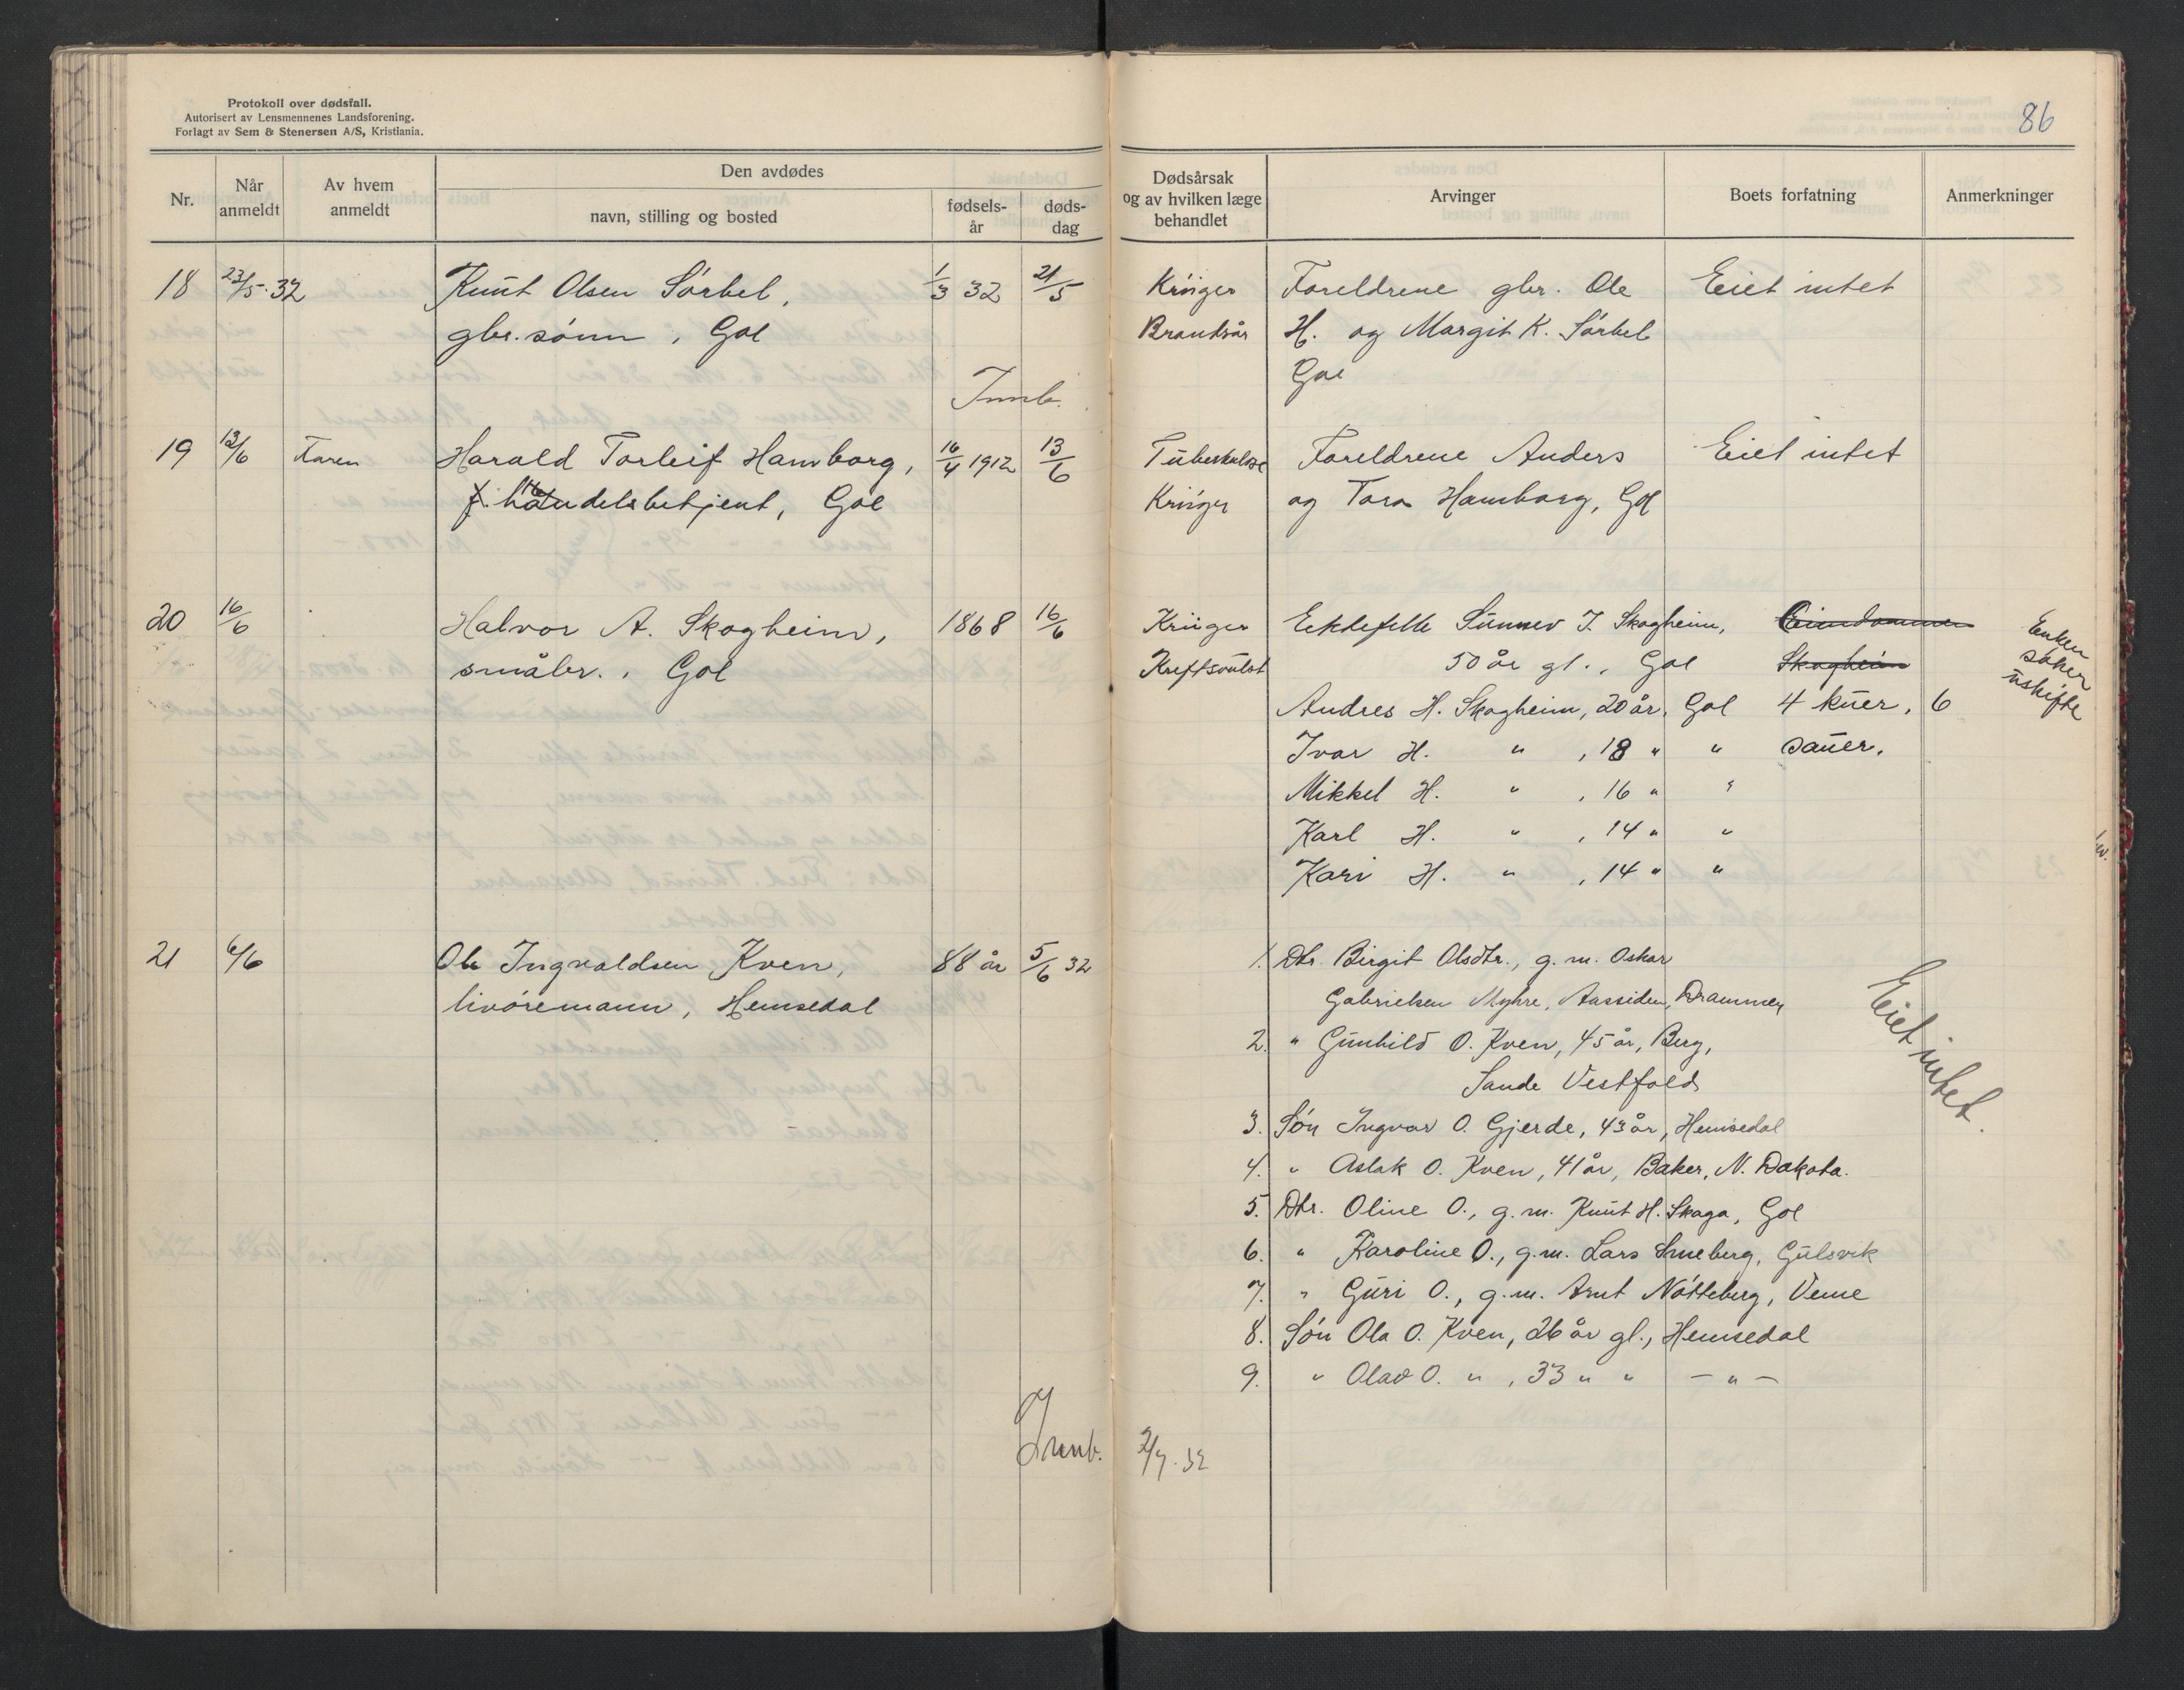 Protokoll over dødsfall.
Autorisert av Lensmennenes Landsforening.
Forlagt av Sem & Stenersen A/S, Kristiania.
86
Nr.
Når anmeldt
Av hvem anmeldt
Den avdødes
navn, stilling og bosted
fødsels-år
døds-dag
Dødsårsak og av hvilken læge behandlet
Arvinger
Boets forfatning
Anmerkninger
18 23/5-32 Knut Olsen Sørbel, 1/3 32 21/5 Krüger Foreldrene gbr. Ole Eiet intet
gbr.sønn, Gol Brandsår H. og Margit K. Sørbel
Gol
Innb.
19 13/6 Faren Harald Torleif Hamborg, 16/4 1912 13/6 Tuberkulose Foreldrene Anders Eiet intet
f. handelsbetjent, Gol Krüger og Tora Hamborg, Gol
20 16/6 Halvor A. Skogheim, 1868 16/6 Krüger Ektefelle Sunnev I. Skogheim, Eiendommen Enken
småbr., Gol Kreftsvulst 50 år gl., Gol Skogheim søker
Andres H. Skogheim, 20 år, Gol 4 kuer, 6 uskifte
Ivar H. " , 18 " " sauer.
Mikkel H. " , 16 " "
Karl H. " , 14 " "
Kari H. " , 14 " "
21 6/6 Ole Ingvaldsen Kven, 88 år 5/6 32 1. Dtr. Birgit Olsdtr., g.m. Oskar
livøremann, Hemsedal Gabrielsen Myhre, Aassiden, Drammen
Eiet intet.
2. " Gunhild O. Kven, 45 år, Berg,
Sande Vestfold
3. Søn Ingvar O. Gjerde, 43 år, Hemsedal
4. " Aslak O. Kven, 41 år, Baker, N. Dakota.
5. Dtr. Oline O., g.m. Knut H. Skaga, Gol
6. " Karoline O., g.m. Lars Smeberg, Gulsvik
7. " Guri O., g.m. Arnt Nøtteberg, Veme
8. Søn Ola O. Kven, 26 år gl., Hemsedal
9. " Olav O. " , 33 " " - " -
Innb. 2/7-32